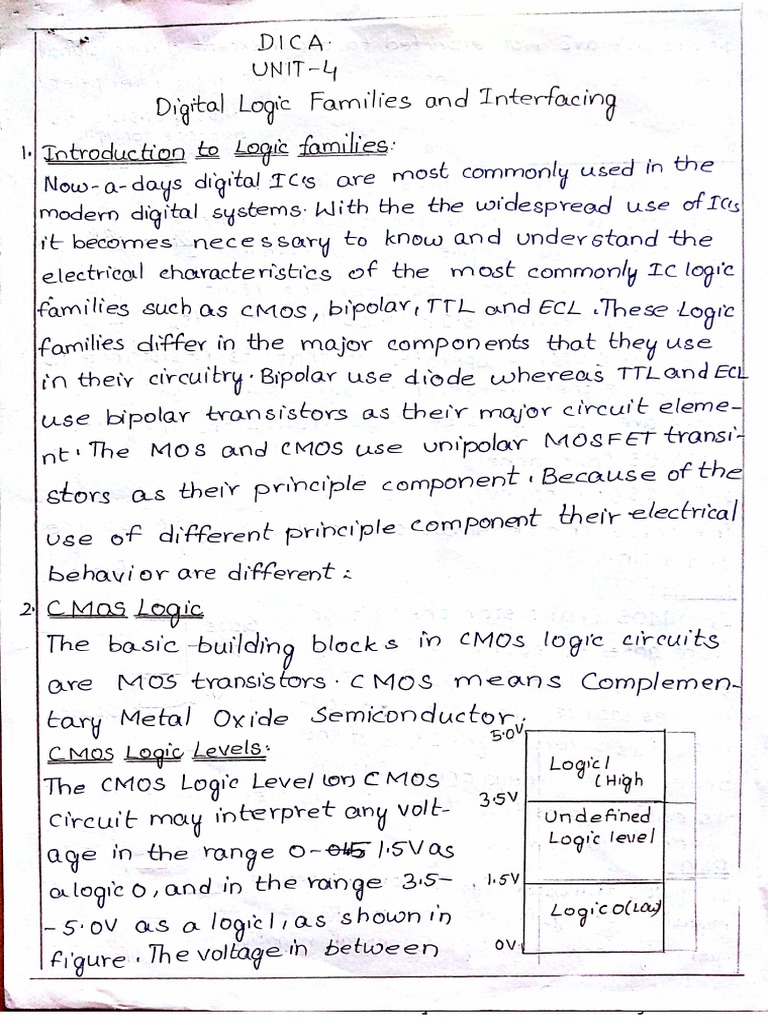 DICA.
UNIT-4
Digital Logic Families and Interfacing
1. Introduction to Logic families:
Now-a-days digital IC's are most commonly used in the
modern digital systems. With the the widespread use of IC's
it becomes necessary to know and understand the
electrical characteristics of the most commonly IC logic
families such as CMOS, bipolar, TTL and ECL. These Logic
families differ in the major components that they use
in their circuitry. Bipolar use diode whereas TTL and ECL
use bipolar transistors as their major circuit eleme-
nt. The MOS and CMOS use unipolar MOSFET transi-
stors as their principle component. Because of the
use of different principle component their electrical
behavior are different:
2. CMOS Logic
The basic building blocks in CMOS logic circuits
are MOS transistors. CMOS means Complemen-
tary Metal Oxide Semiconductor.
CMOS Logic Levels:
The CMOS Logic Level (or) CMOS
circuit may interpret any volt-
age in the range 0- 1.5V as
a logic 0, and in the range 3.5-
-5.0V as a logic 1, as shown in
figure. The voltage in between
5.0V
Logic 1
(High
3.5V
Undefined
Logic level
1.5V
Logic 0(Low)
0V